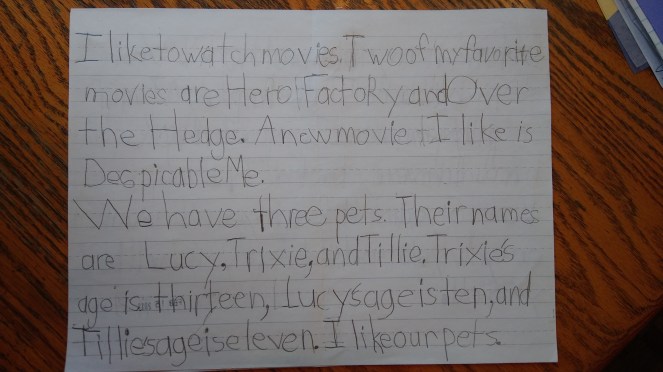 I like to watch movies. Two of my favorite
movies are Hero Factory and Over
the Hedge. A new movie I like is
Despicable Me.
We have three pets. Their names
are Lucy, Trixie, and Tillie. Trixie's
age is thirteen, Lucy's age is ten, and
Tillies age is eleven. I like our pets.